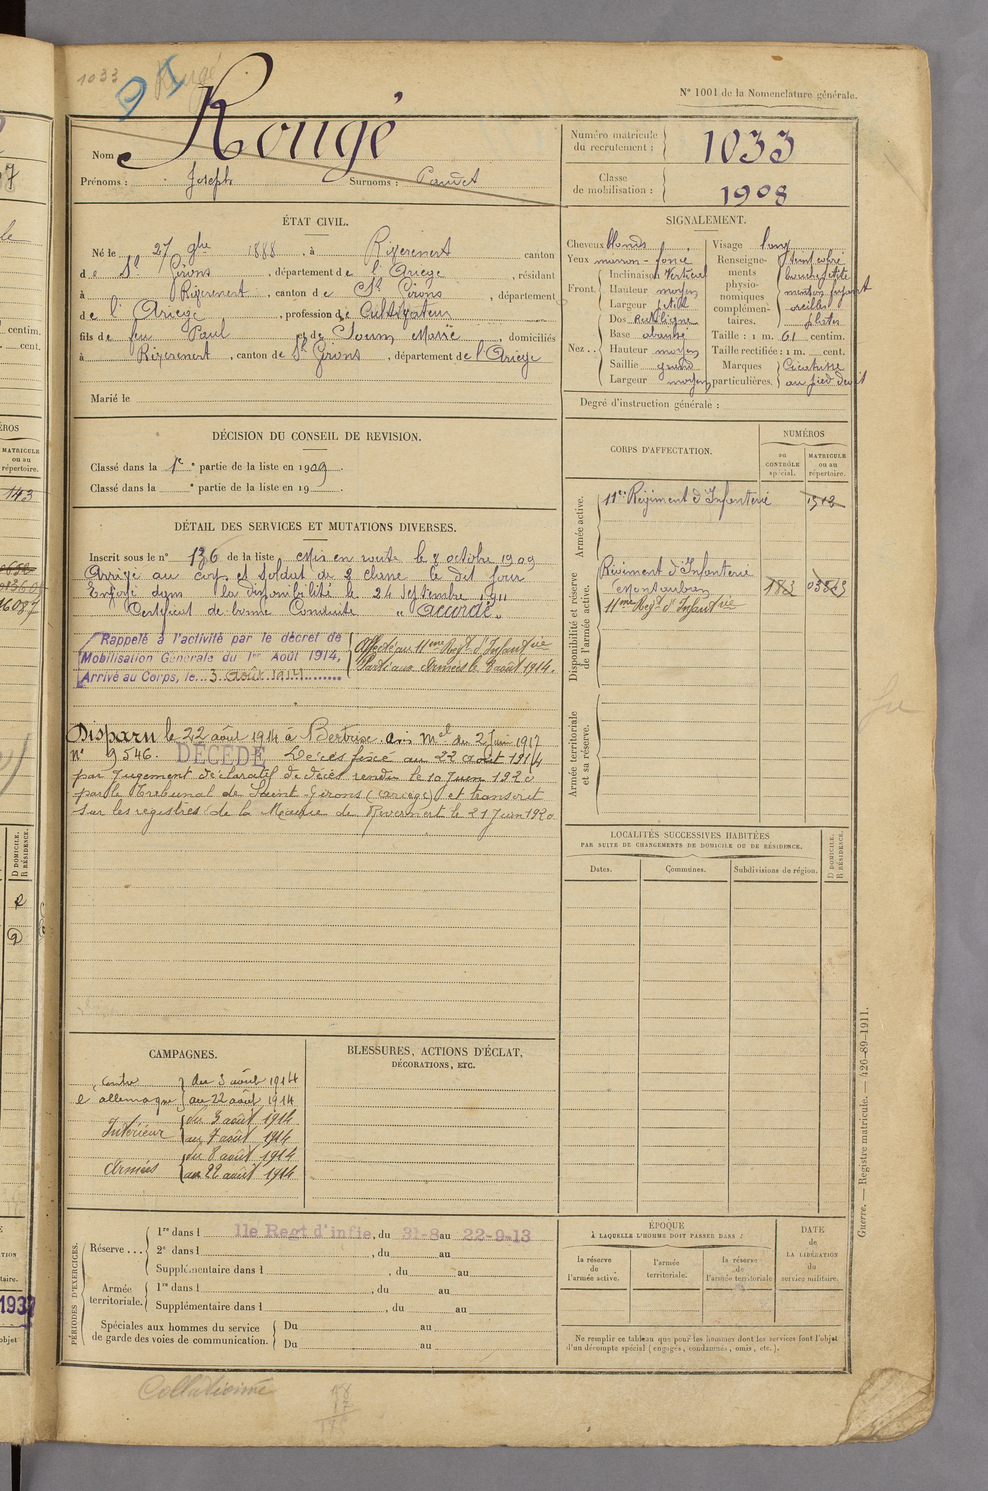 1033 Rougé
91
N° 1001 de la Nomenclature générale.
Nom Rougé
Prénoms : Joseph Surnoms :
Numéro matricule du recrutement : 1033
Classe de mobilisation : 1908
ÉTAT CIVIL.
Né le 27 9bre 1888, à Riverenert canton
de St Girons, département de l'Ariège, résidant
à Riverenert, canton de St Girons, département
de l'Ariège, profession de Cultivateur
fils de feu Paul et de Soum Marie, domiciliés
à Riverenert, canton de St Girons, département de l'Ariège
Marié le
SIGNALEMENT.
Cheveux blonds
Yeux marron-foncé
Front. Inclinaison Vertical
Hauteur moyen
Largeur petite
Nez.. Dos Rectiligne
Base abaissé
Hauteur moyen
Saillie grand
Largeur moyen
Visage long
Renseignements physionomiques complémentaires. teint coloré
bouche petite
menton fuyant
oreilles
plates
Taille : 1 m. 61 centim.
Taille rectifiée : 1 m. cent.
Marques particulières. Cicatrice
au pied droit
Degré d'instruction générale :
DÉCISION DU CONSEIL DE REVISION.
Classé dans la 1re partie de la liste en 1909.
Classé dans la e partie de la liste en 19
CORPS D'AFFECTATION.
NUMÉROS
au CONTRÔLE spécial.
MATRICULE ou au répertoire.
Armée active.
11e Régiment d'Infanterie 1512
Disponibilité et réserve de l'armée active.
Régiment d'Infanterie
Montauban 183
11ème Régt d'Infanterie
Armée territoriale et sa réserve.
DÉTAIL DES SERVICES ET MUTATIONS DIVERSES.
Inscrit sous le n° 136 de la liste Mis en route le 7 octobre 1909
Arrivé au corps et soldat de 2 classe le dit jour
Envoyé dans la disponibilité le 24 Septembre 1911
Certificat de bonne Conduite " accordé.
Rappelé à l'activité par le décret de
Mobilisation Générale du 1er Août 1914,
Arrivé au Corps, le 3 Août 1914
Affecté au 11ème Régt d'Infanterie
Parti aux Armées le 8 août 1914.
Disparu le 22 août 1914 à Bertrix. Avis Mel du 2 Juin 1917
n° 9546. DÉCÉDÉ Décès fixé au 22 août 1914
par Jugement déclaratif de décès rendu le 10 Juin 1920
par le Tribunal de Saint-Girons (Ariège) et transcrit
sur les registres de la Mairie de Rivernert le 21 Juin 1920
LOCALITÉS SUCCESSIVES HABITÉES
PAR SUITE DE CHANGEMENTS DE DOMICILE OU DE RÉSIDENCE.
Dates.
Communes.
Subdivisions de région.
D DOMICILE.
R RÉSIDENCE.
CAMPAGNES.
contre du 3 août 1914
l'allemagne au 22 août 1914
Intérieur du 3 août 1914
au 7 août 1914
Armées du 8 août 1914
au 22 août 1914
BLESSURES, ACTIONS D'ÉCLAT,
DÉCORATIONS, ETC.
PÉRIODES D'EXERCICES.
Réserve... 1re dans l 11e Regt d'infie, du 31-8 au 22-9-13
2e dans l , du au
Supplémentaire dans l , du au
Armée territoriale. 1re dans l , du au
Supplémentaire dans l , du au
Spéciales aux hommes du service
de garde des voies de communication. Du au
Du au
ÉPOQUE
À LAQUELLE L'HOMME DOIT PASSER DANS :
la réserve de l'armée active.
l'armée territoriale.
la réserve de l'armée territoriale
DATE
de
LA LIBÉRATION
du
service militaire.
Ne remplir ce tableau que pour les hommes dont les services font l'objet
d'un décompte spécial (engagés, condamnés, omis, etc.).
Guerre. — Registre matricule. — 426-89-1911.
Collationné